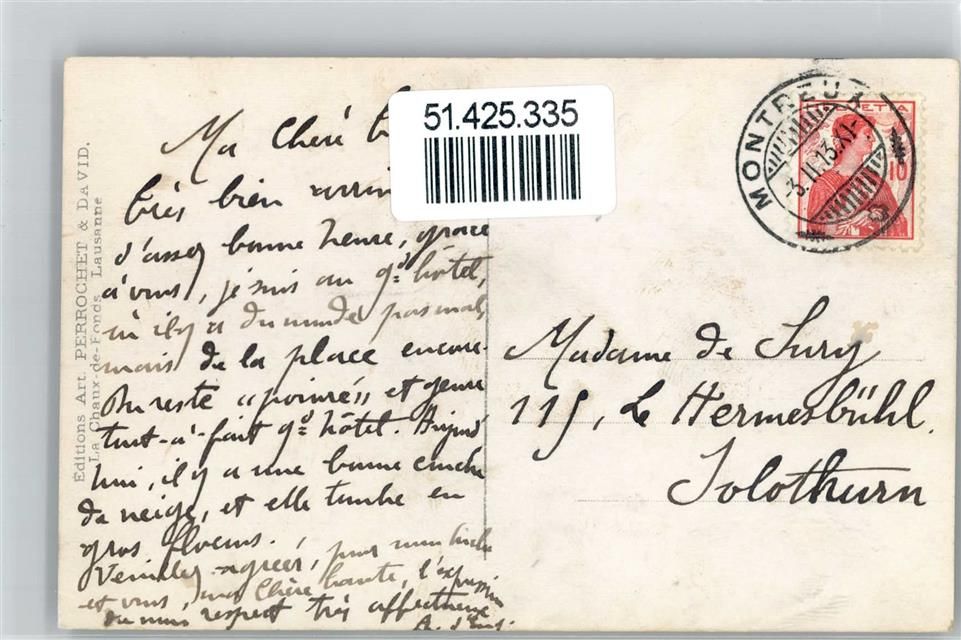 51.425.335
MONTREUX
3.II.13.XI-
HELVETIA
10
Editions Art. PERROCHET & DAVID.
La Chaux-de-Fonds Lausanne
Ma Chère
très bien
d'assez bonne heure, grâce
à vous, je suis au gd hôtel,
où il y a du monde pas mal,
mais de la place encore.
Du reste "poiré" et genre
tout-à-fait gd hôtel. Aujourd
hui, il y a une bonne couche
de neige, et elle tombe en
gros flocons.
Veuillez agréer, pour mon oncle
et vous, ma Chère tante, l'expression
de mon respect très affectueux
Madame de Sury
115, Le Hermesbühl.
Solothurn